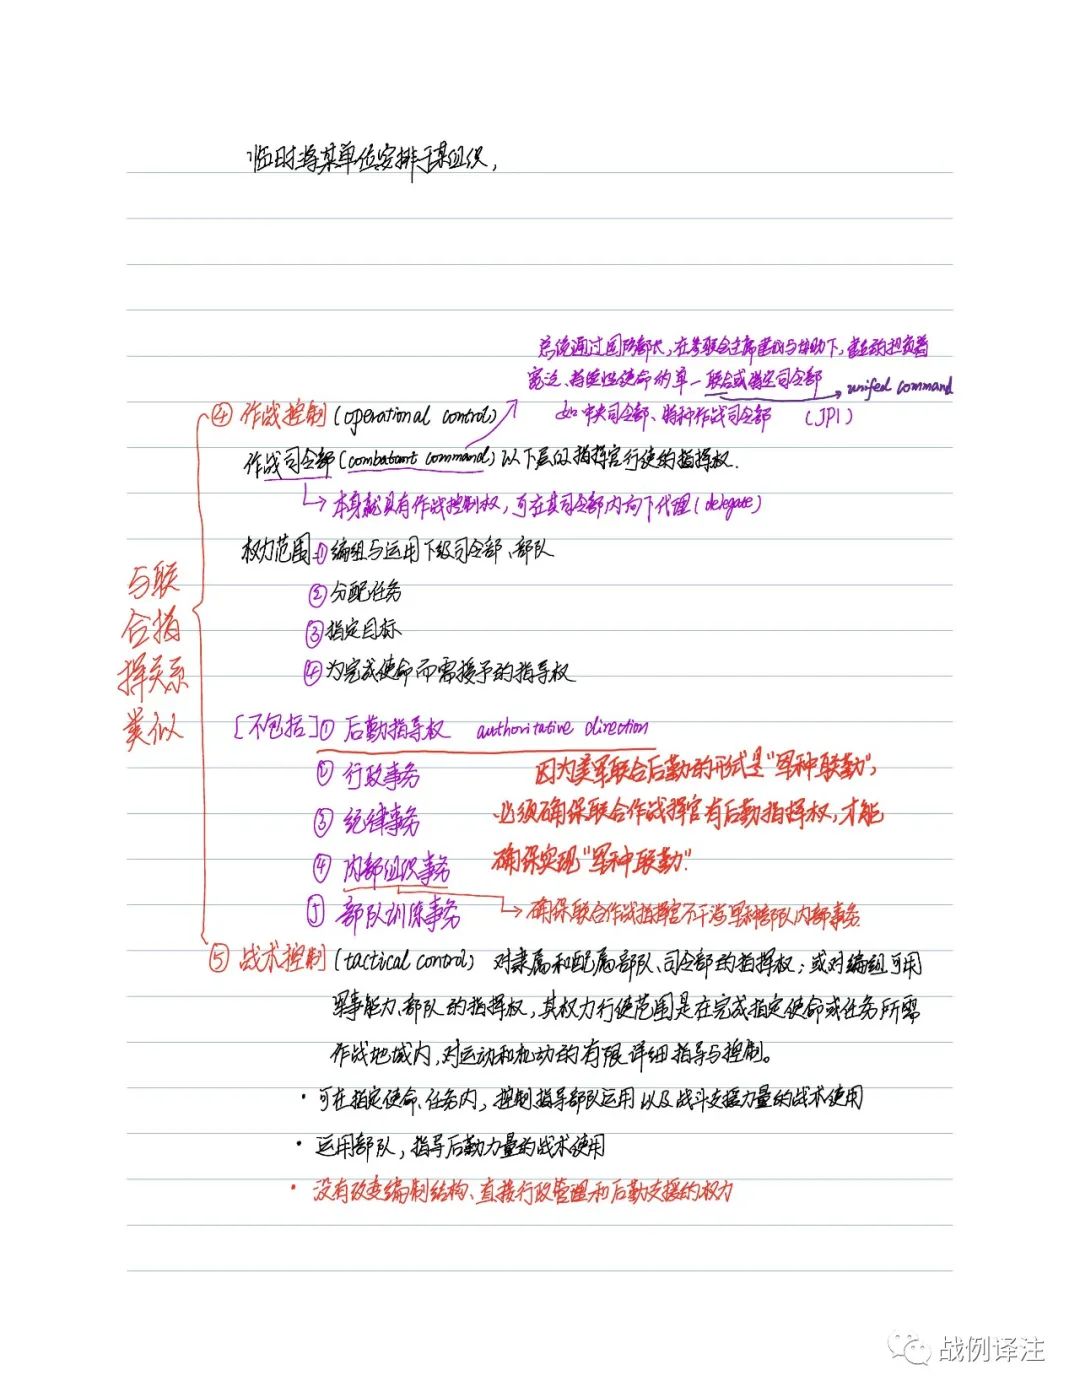 临时将某单位安排于某组织,
总统通过国防部长,在参联会主席建议与协助下,建立的担负着
宽泛、持续性使命的单一联合或指定司令部 → unifed command
④ 作战控制 (operational control) 如中央司令部、特种作战司令部 (JP1)
作战司令部 (combatant command) 以下层的指挥官行使的指挥权.
→ 本身就具有作战控制权,可在其司令部内向下代理 (delegate)
权力范围 ① 编组与运用下级司令部、部队
② 分配任务
③ 指定目标
④ 为完成使命而需授予的指导权
与联
合指
挥关系
类似
[不包括] ① 后勤指导权 authoritative direction
② 行政事务 因为美军联合后勤的形式是"军种联勤",
③ 纪律事务 必须确保联合作战挥官有后勤指挥权,才能
④ 内部组织事务 确保实现"军种联勤".
⑤ 部队训练事务 → 确保联合作战指挥官不干涉军种部队内部事务.
⑤ 战术控制 (tactical control) 对隶属和配属部队、司令部的指挥权;或对编组可用
军事能力、部队的指挥权,其权力行使范围是在完成指定使命或任务所需
作战地域内,对运动和机动的有限详细指导与控制。
· 可在指定使命、任务内,控制指导部队运用以及战斗支援力量的战术使用
· 运用部队,指导后勤力量的战术使用
· 没有改变编制结构、直接行政管理和后勤支援的权力
战例译注